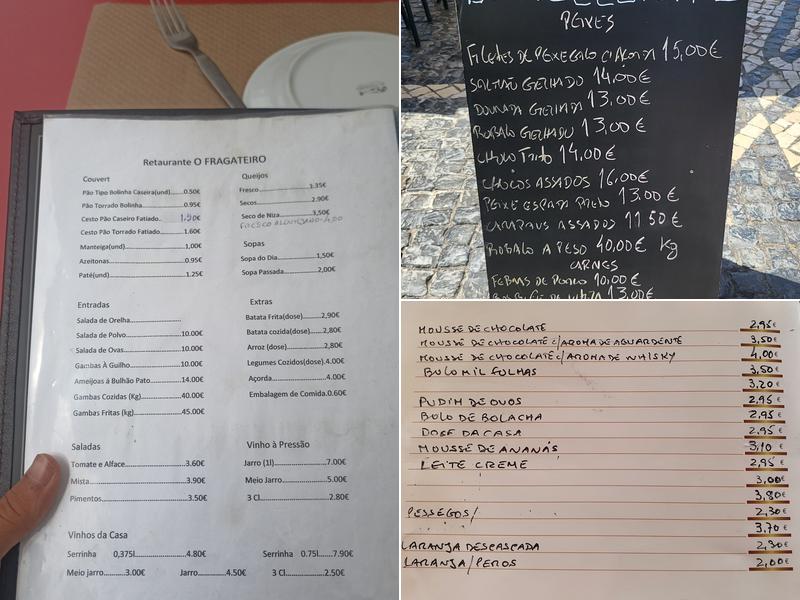 Retaurante O FRAGATEIRO
Couvert
Pão Tipo Bolinha Caseira(und)......0.50€
Pão Torrado Bolinha..................0.95€
Cesto Pão Caseiro Fatiado. 1,50€
Cesto Pão Torrado Fatiado..........1.60€
Manteiga(und)..........................1,00€
Azeitonas................................0.95€
Paté(und)................................1.25€
Queijos
Fresco........................1.35€
Secos.........................2.90€
Seco de Niza................3,50€
Sopas
Sopa do Dia..................1,50€
Sopa Passada................2,00€
Entradas
Salada de Orelha.......................
Salada de Polvo.......................10.00€
Salada de Ovas........................10.00€
Gambas À Guilho......................10.00€
Ameijoas á Bulhão Pato.............14.00€
Gambas Cozidas (Kg)................40.00€
Gambas Fritas (kg)...................45.00€
Extras
Batata Frita(dose)........2,90€
Batata cozida(dose)......2,80€
Arroz (dose)................2.80€
Legumes Cozidos(dose).4.00€
Açorda.......................4.00€
Embalagem de Comida.0.60€
Saladas
Tomate e Alface.......................3.60€
Mista.....................................3.90€
Pimentos................................3.50€
Vinho à Pressão
Jarro (1l)......................7.00€
Meio Jarro...................5.00€
3 Cl............................2.80€
Vinhos da Casa
Serrinha 0,375l...............4.80€
Serrinha 0.75l.......7.90€
Meio jarro.....3.00€ Jarro.........4.50€ 3 Cl.........2.50€
PEIXES
FILETES DE PEIXE GALO C/AÇORDA 15,00€
SALMÃO GRELHADO 14,00€
DOURADA GRELHADA 13,00€
ROBALO GRELHADO 13,00€
CHOCO FRITO 14,00€
CHOCOS ASSADOS 16,00€
PEIXE ESPADA PRETO 13.00€
CARAPAUS ASSADOS 11 50€
ROBALO A PESO 40,00€ Kg
CARNES
FEBRAS DE PORCO 10,00€
13,00€
MOUSSE DE CHOCOLATE 2,95€
MOUSSE DE CHOCOLATE C/AROMA DE AGUARDENTE 3,50€
MOUSSE DE CHOCOLATE C/AROMA DE WHISKY 4,00€
BOLO MIL FOLHAS 3,50€
3,20€
PUDIM DE OVOS 2,95€
BOLO DE BOLACHA 2,95€
DOCE DA CASA 2,95€
MOUSSE DE ANANÁS 3,10€
LEITE CREME 2,95€
3,00€
3,80€
PESSEGOS/ 2,30€
3,70€
LARANJA DESCASCADA 2,30€
LARANJA/PEROS 2,00€